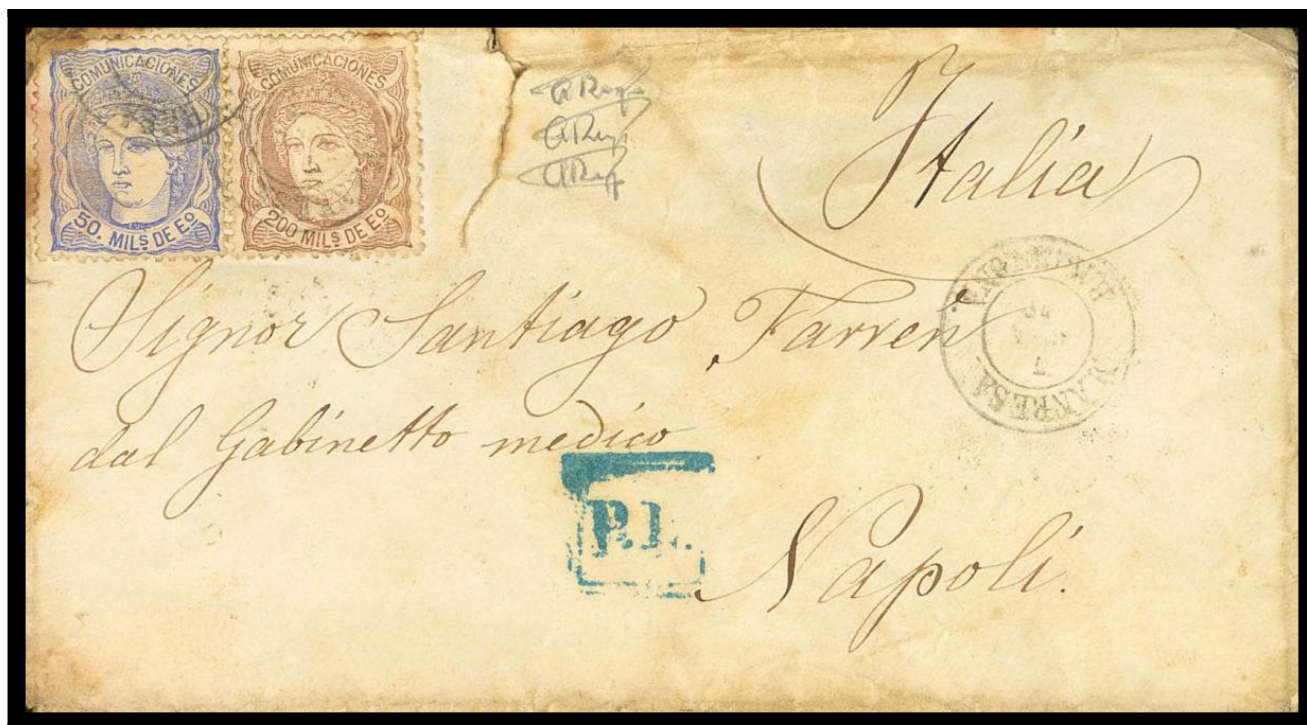 COMUNICACIONES
50. MILS DE Eº
COMUNICACIONES
200 MILS DE Eº
Italia
Signor Santiago Farren
dal Gabinetto medico
Napoli.
MANRESA